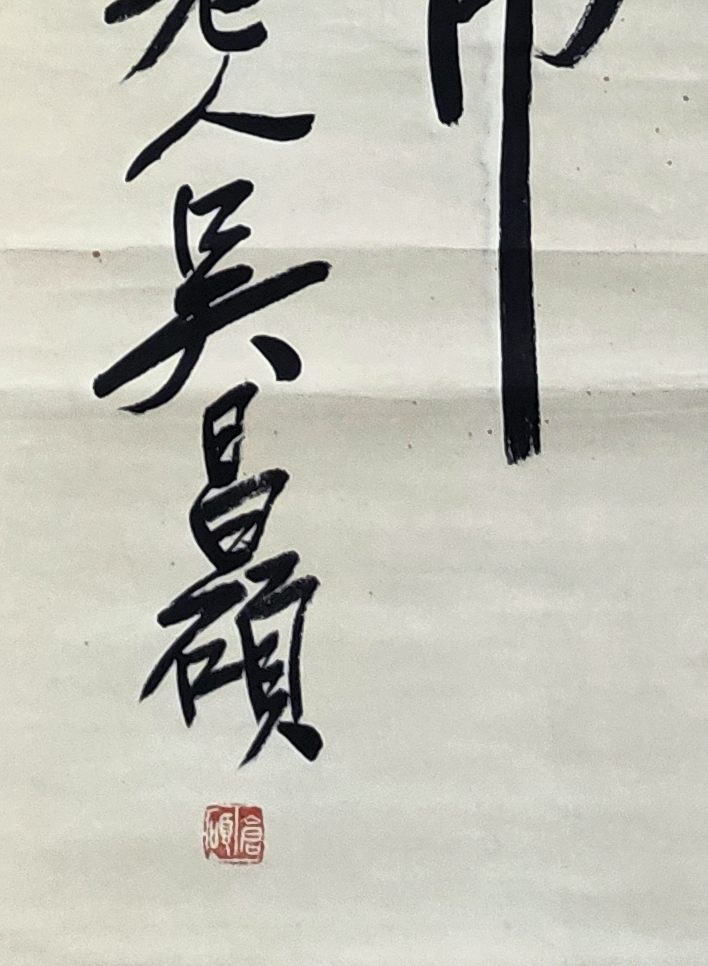 老人吳昌碩
倉碩